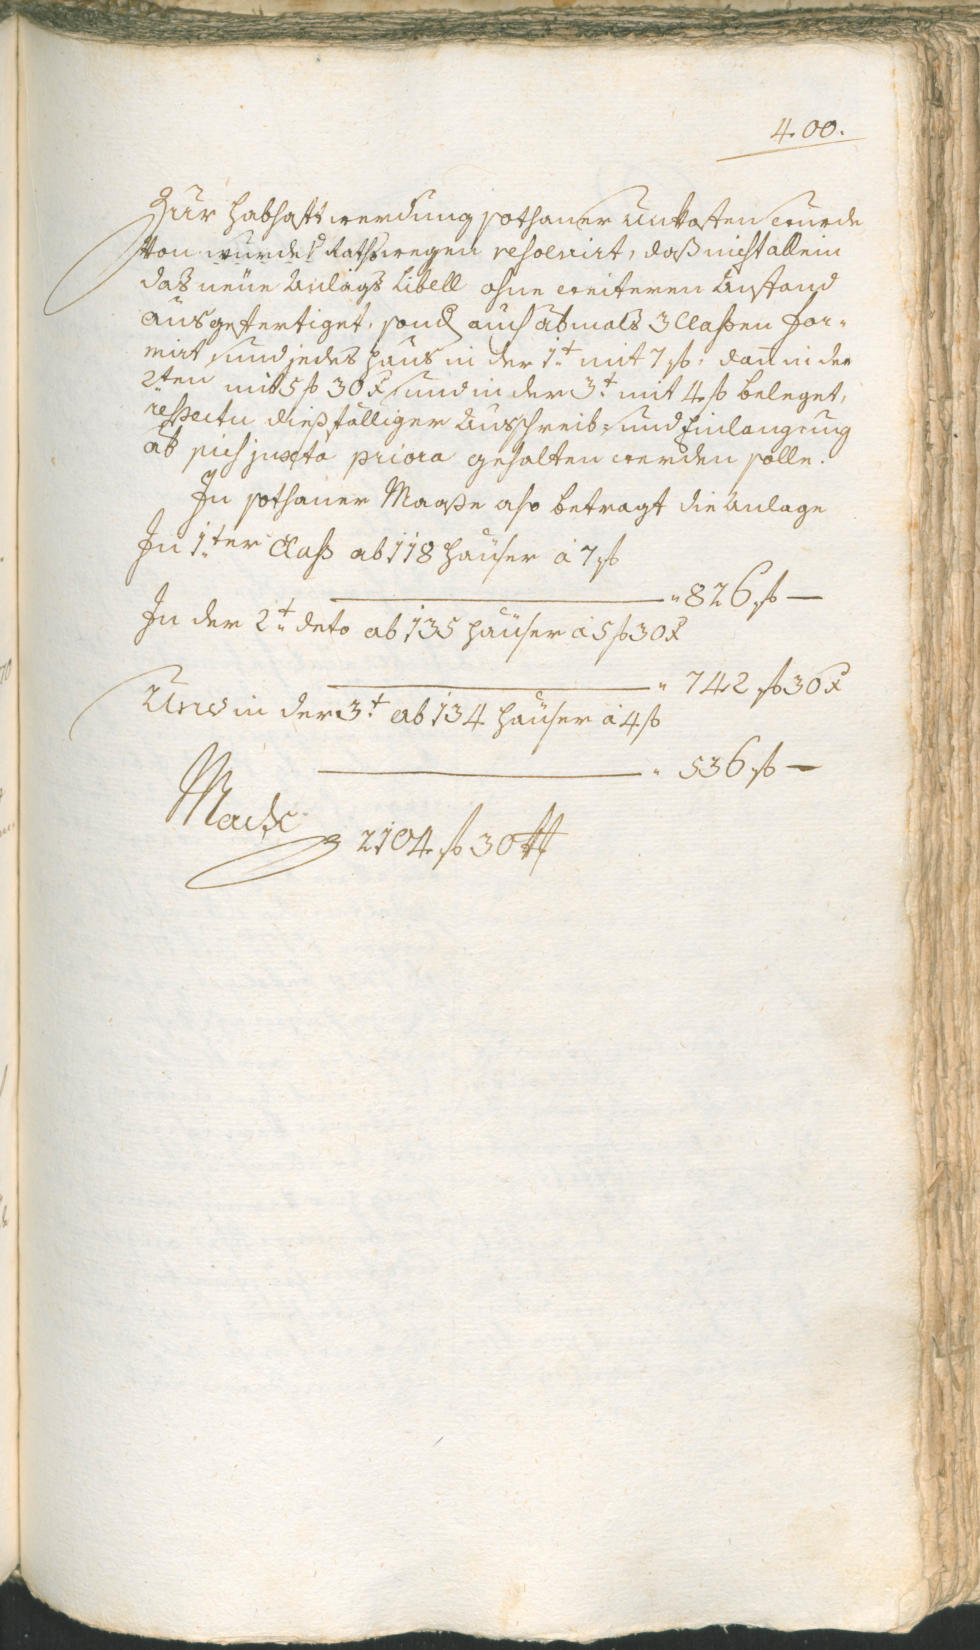 400.
Zur habhaft werdung sothaner Unkosten wurde
von wurdes Rathswegen resolvirt, daß nicht allein
das neüe Anlags Libell ohne weiteren Anstand
ausgefertiget, sond auch abmals 3 Claßen for-
mirt, und jedes Haus in der 1t mit 7 f, dañ in der
2ten mit 5 f 30 x, und in der 3t mit 4 f beleget,
respectu dießfälliger Ausschreib- und Einlangung
ab sich juxta priora gehalten werden solle.
In sothaner Maaße also betragt die Anlage
In 1ter Claß ab 118 Haüser à 7 f
" 826 f —
In der 2t deto ab 135 Haüser à 5 f 30 x
" 742 f 30 x
Und in der 3t ab 134 Haüser à 4 f
" 536 f —
Macht
2104 f 30 x